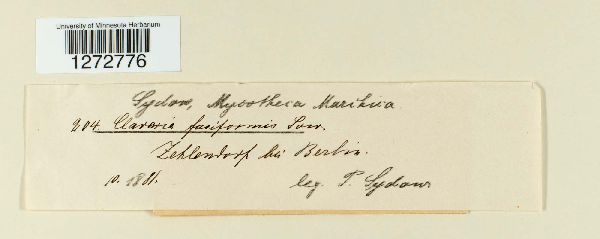 University of Minnesota Herbarium
1272776
Sydow, Mycotheca Marchica
904. Clavaria fusiformis Sow.
Zehlendorf bei Berlin.
10. 1881. leg. P. Sydow